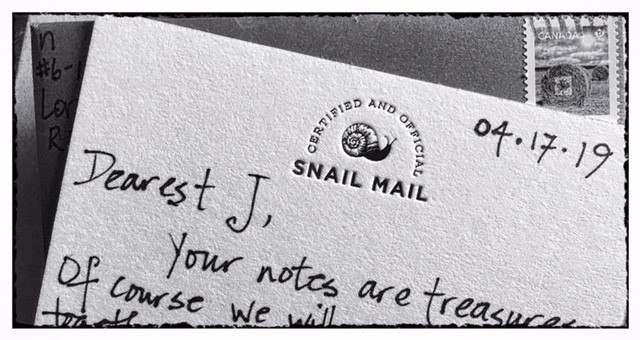 CANADA
n
#6-1
Lor
R
CERTIFIED AND OFFICIAL
SNAIL MAIL
04.17.19
Dearest J,
Your notes are treasures
Of course we will